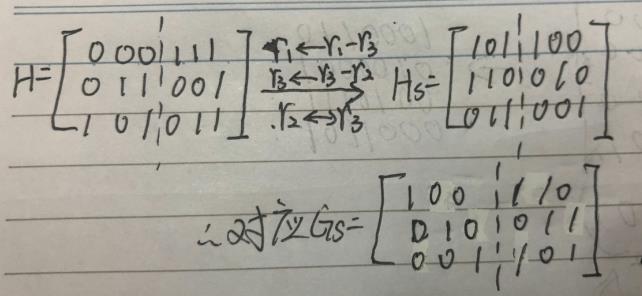 H= [ 0 0 0 ¦ 1 1 1
0 1 1 ¦ 0 0 1
1 0 1 ¦ 0 1 1 ]
r₁←r₁-r₃
r₃←r₃-r₂
r₂↔r₃
Hs= [ 1 0 1 ¦ 1 0 0
1 1 0 ¦ 0 1 0
0 1 1 ¦ 0 0 1 ]
∴对应Gs= [ 1 0 0 ¦ 1 1 0
0 1 0 ¦ 0 1 1
0 0 1 ¦ 1 0 1 ]